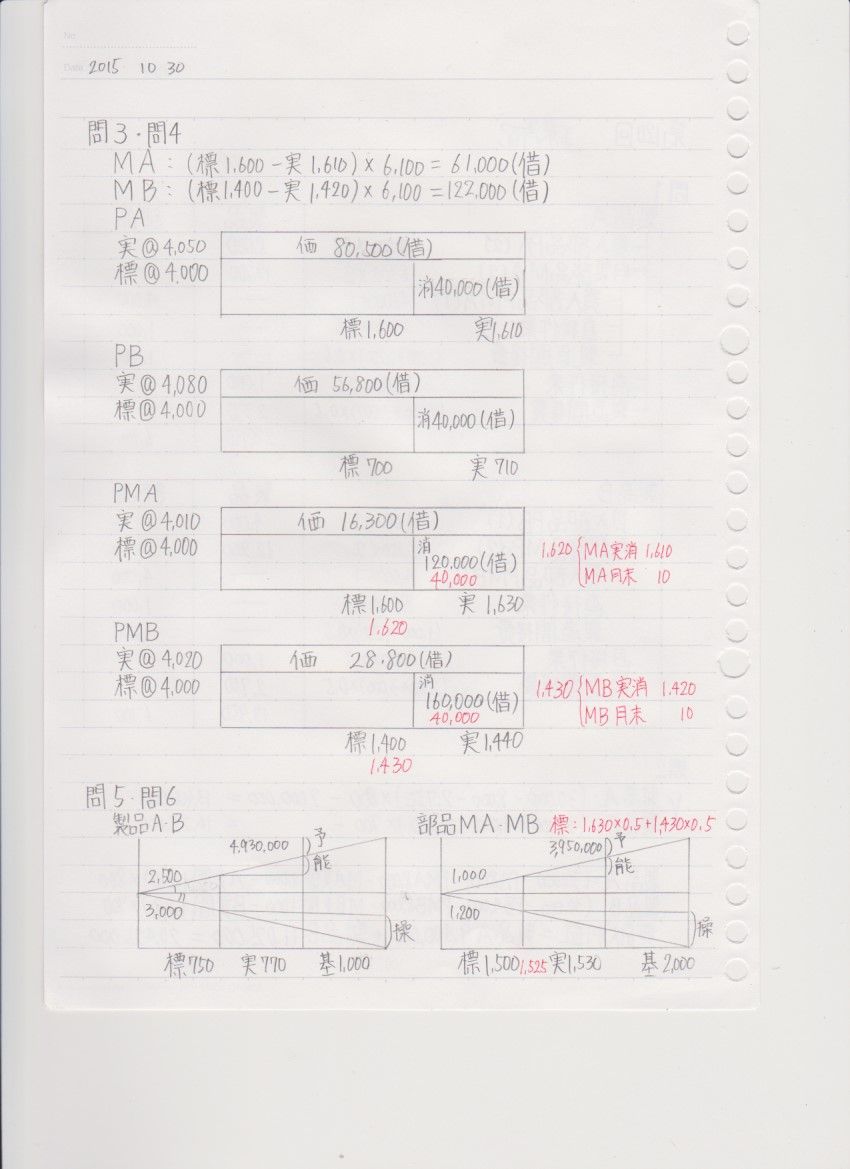 No
Date 2015 10 30
問3・問4
MA：(標1,600－実1,610)×6,100＝61,000(借)
MB：(標1,400－実1,420)×6,100＝122,000(借)
PA
実@4,050 価 80,500(借)
標@4,000 消40,000(借)
標1,600 実1,610
PB
実@4,080 価 56,800(借)
標@4,000 消40,000(借)
標700 実710
PMA
実@4,010 価 16,300(借)
標@4,000 消
120,000(借) 1,620 MA実消 1,610
40,000 MA月末 10
標1,600 実1,630
1,620
PMB
実@4,020 価 28,800(借)
標@4,000 消
160,000(借) 1,430 MB実消 1,420
40,000 MB月末 10
標1,400 実1,440
1,430
問5・問6
製品A・B 部品MA・MB 標：1,630×0.5+1,430×0.5
4,930,000 予 3,950,000 予
能 能
2,500 1,000
3,000 1,200
操 操
標750 実770 基1,000 標1,500 1,525 実1,530 基2,000